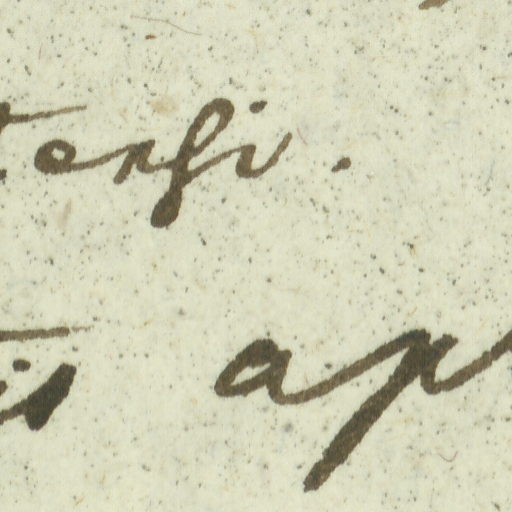 tersi.
tis ap